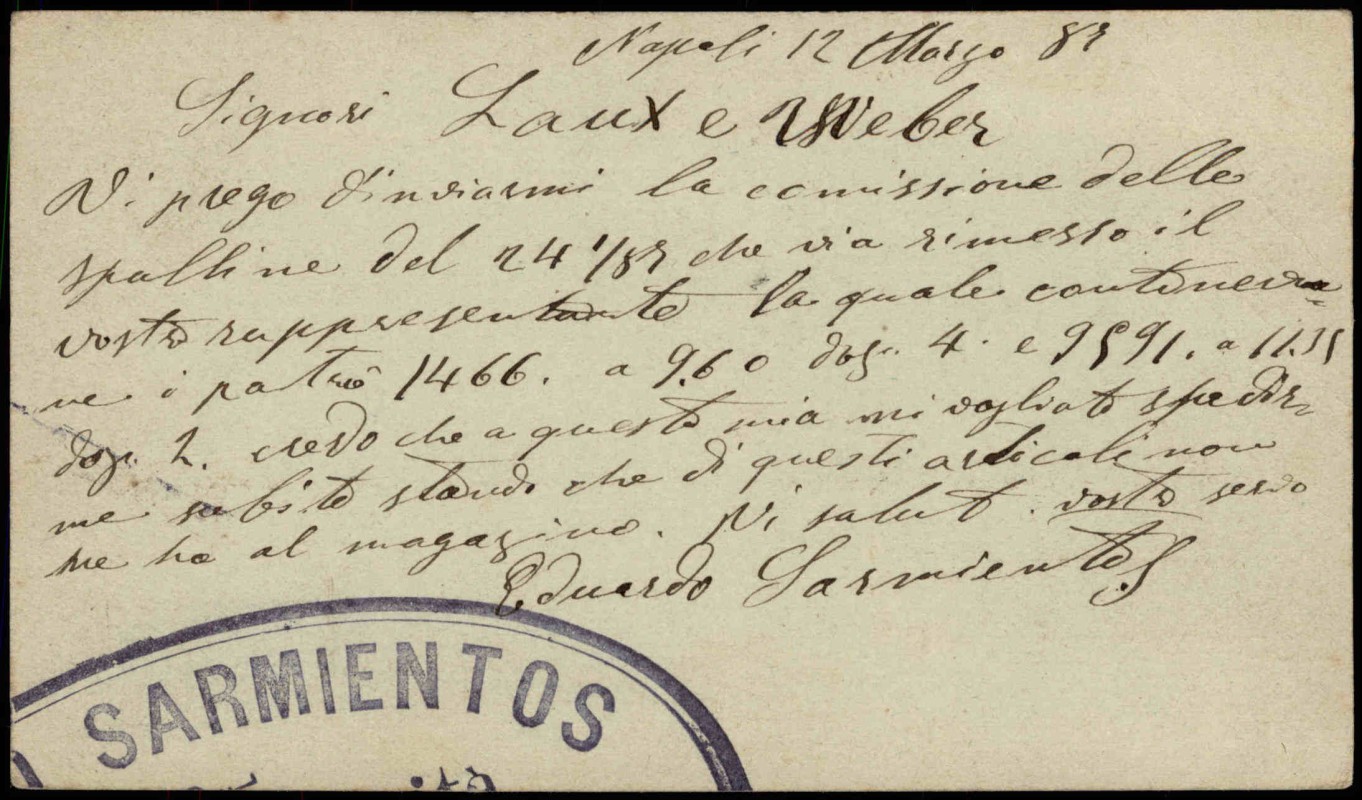 Napoli 12 Marzo 82
Signori Laux e Weber
Vi prego d'inviarmi la comissione delle
spalline del 24 1/82 che via rimesso il
vostro rappresentante la quale contineva
ne i patrió 1466. a 9.60 doz. 4. e 9591. a 11.15
doz. 2. credo che a questo mia mi vogliate spedir
me subito stando che di questi articoli non
ne ho al magazino. Vi salut. vostro servo
Eduardo Sarmientos
SARMIENTOS